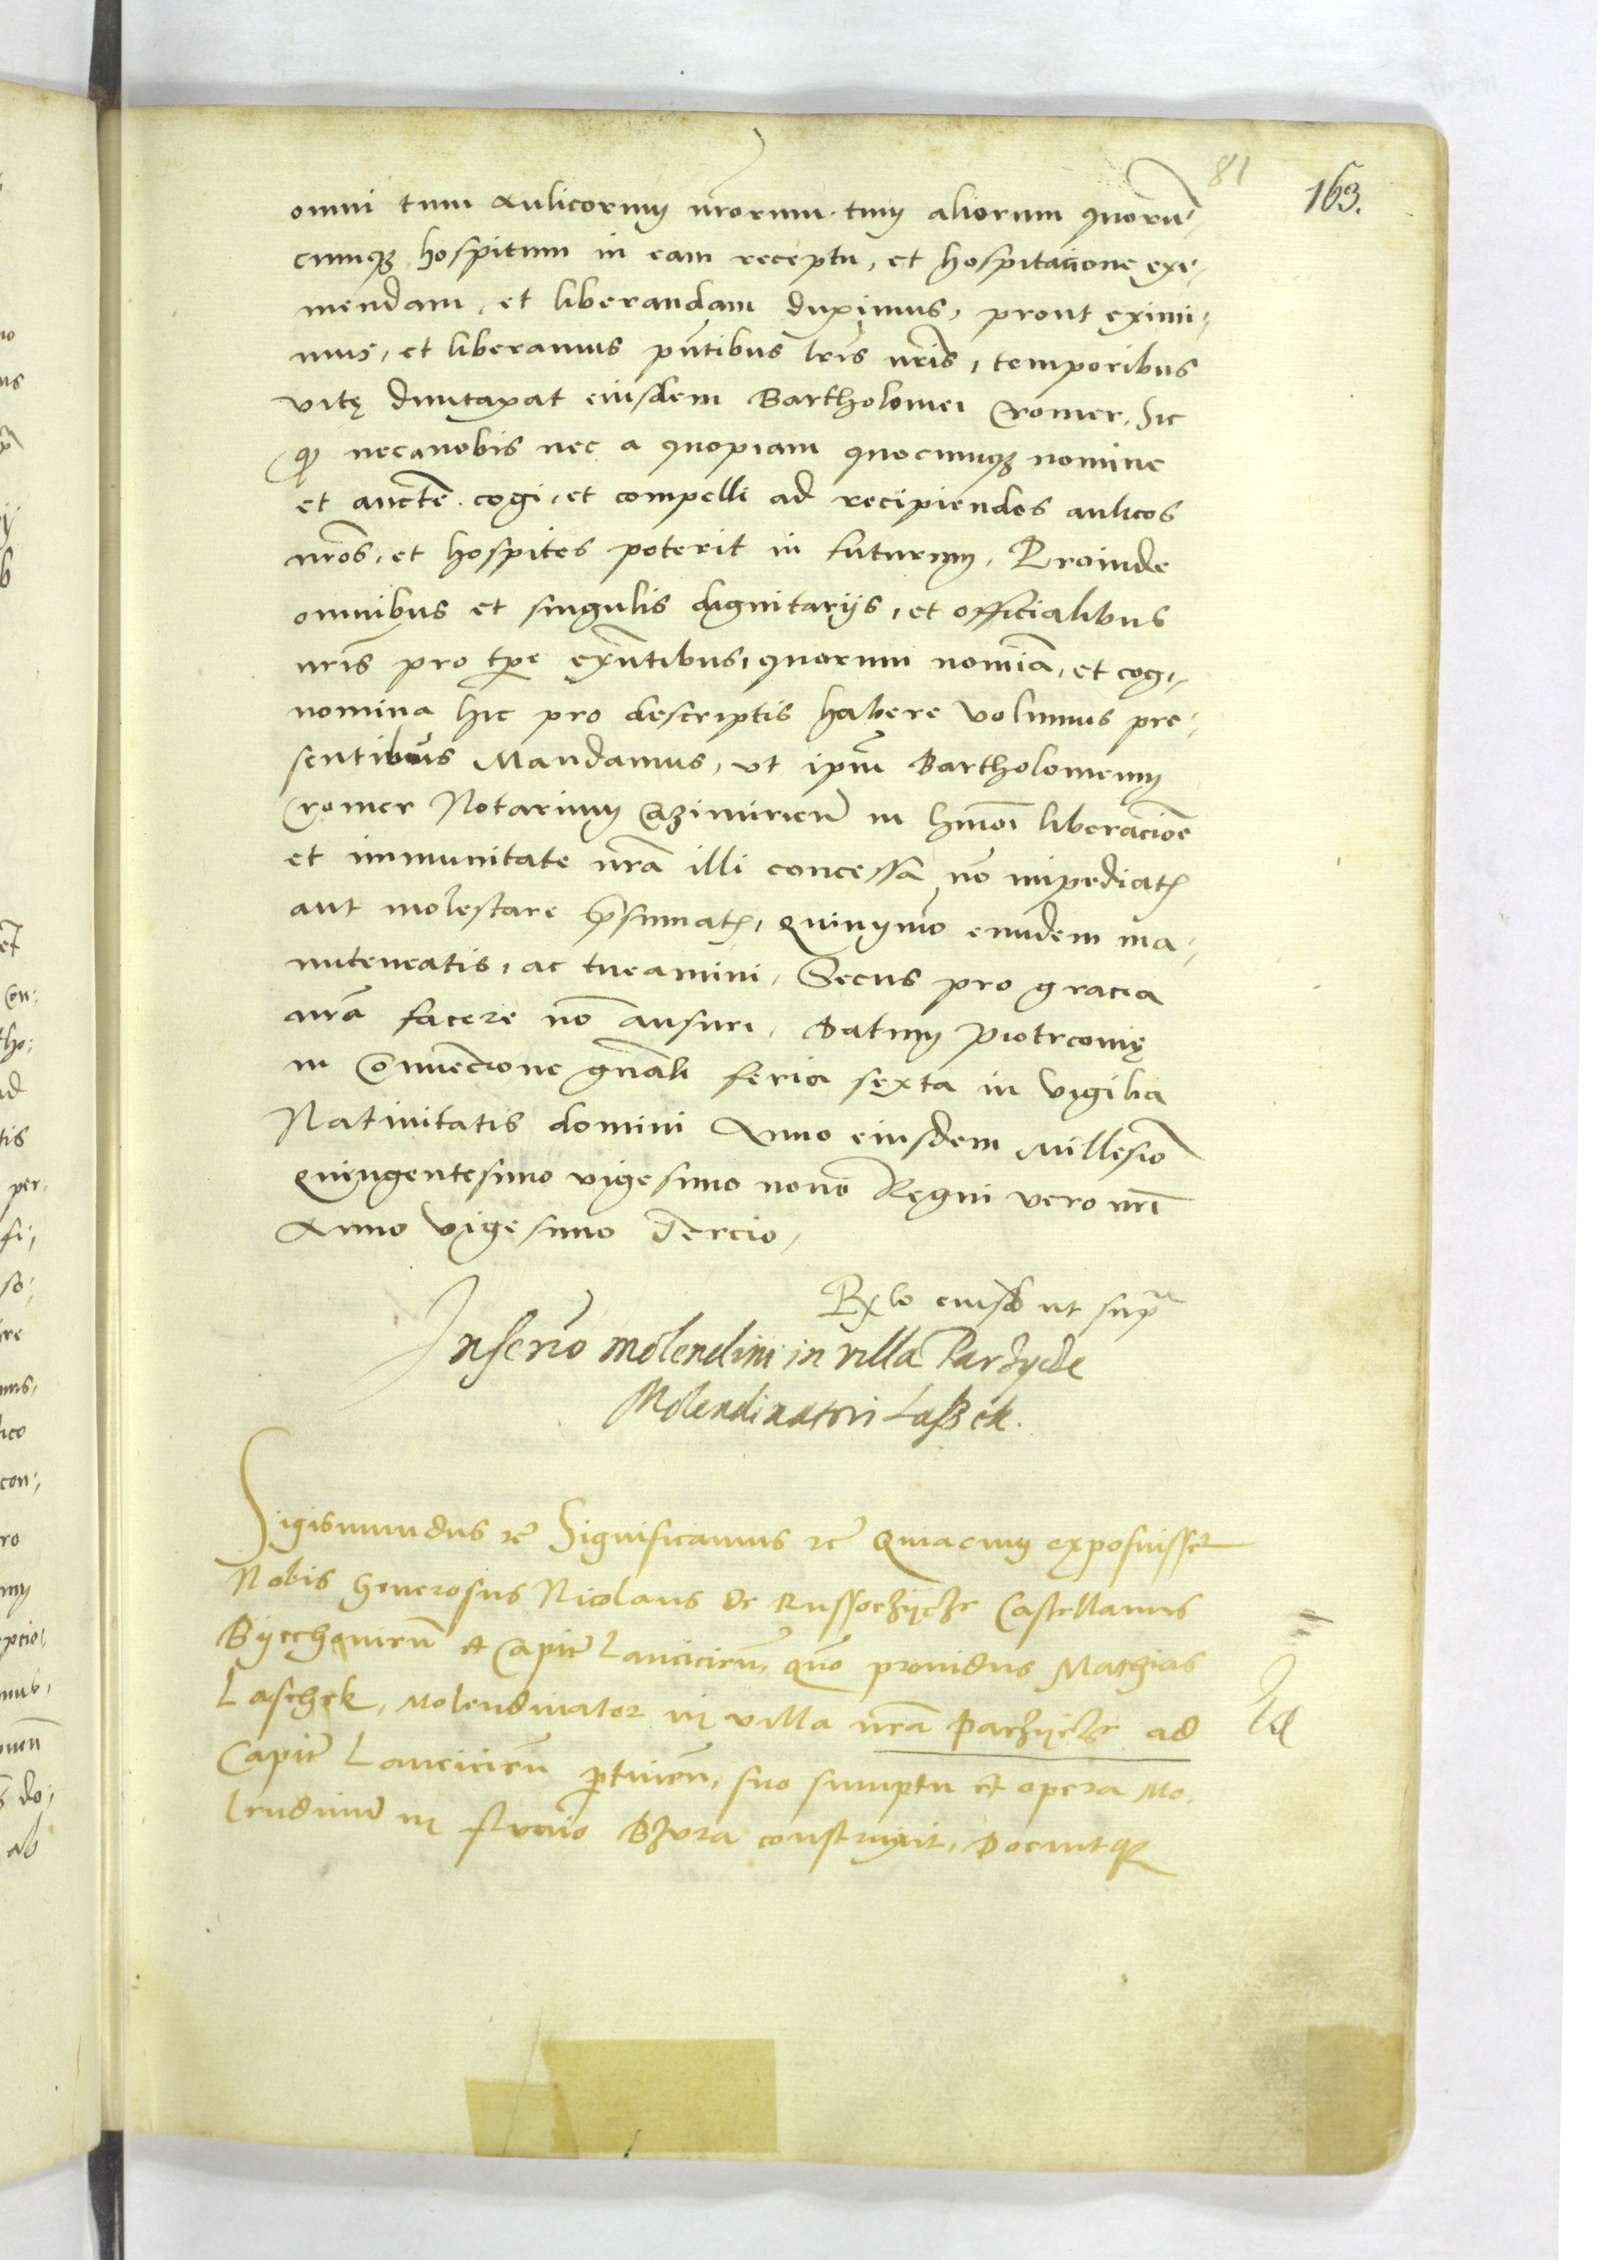 81
163.
omni tum Aulicorum nrorum. tum aliorum quoru-
cumqз hospitum in eam receptu, et hospitatione exi-
mendam, et liberandam duximus, prout eximi-
mus, et liberamus pntibus lris nris, temporibus
vitę duntaxat eiusdem Bartholomei Cromer, Sic
qp nec a nobis nec a quopiam quocumqз nomine
et aucte. cogi, et compelli ad recipiendos aulicos
nros, et hospites poterit in futurum, Proinde
omnibus et singulis dignitarijs, et officialibus
nris pro tpe exntibus, quorum nomia, et cog-
nomina hic pro descriptis habere volumus pre-
sentibus Mandamus, ut ipm Bartholomeum
Cromer Notarium Cazimirien in hmoi liberacioe
et immunitate nra illi concessa no impediatis
aut molestare psumatis, Quinymo eundem ma-
nuteneatis, ac tueamini, Secus pro gracia
nra facere no ausuri, Datum Piotrcovię
in Convencione gnali feria sexta in vigilia
Nativitatis domini Anno eiusdem Millesio
Quingentesimo vigesimo nono Regni vero nri
Anno vigesimo Tercio,
Rlo eiusd ut supra
Inscrio molendini in villa Parzycze
Molendinatori Laßek.
Sigismundus rc Significamus rc Quia cum exposuisset
Nobis Generosus Nicolaus de Russoczycze Castellanus
Byechovien et Capit Lancicien, quo providus Mathias
Laschek, Molendinator in villa nra Parzycze ad
Capit Lancicien ptinen, suo sumptu et opera Mo-
lendinu in fluvio Bzura construxit, Docuitqз